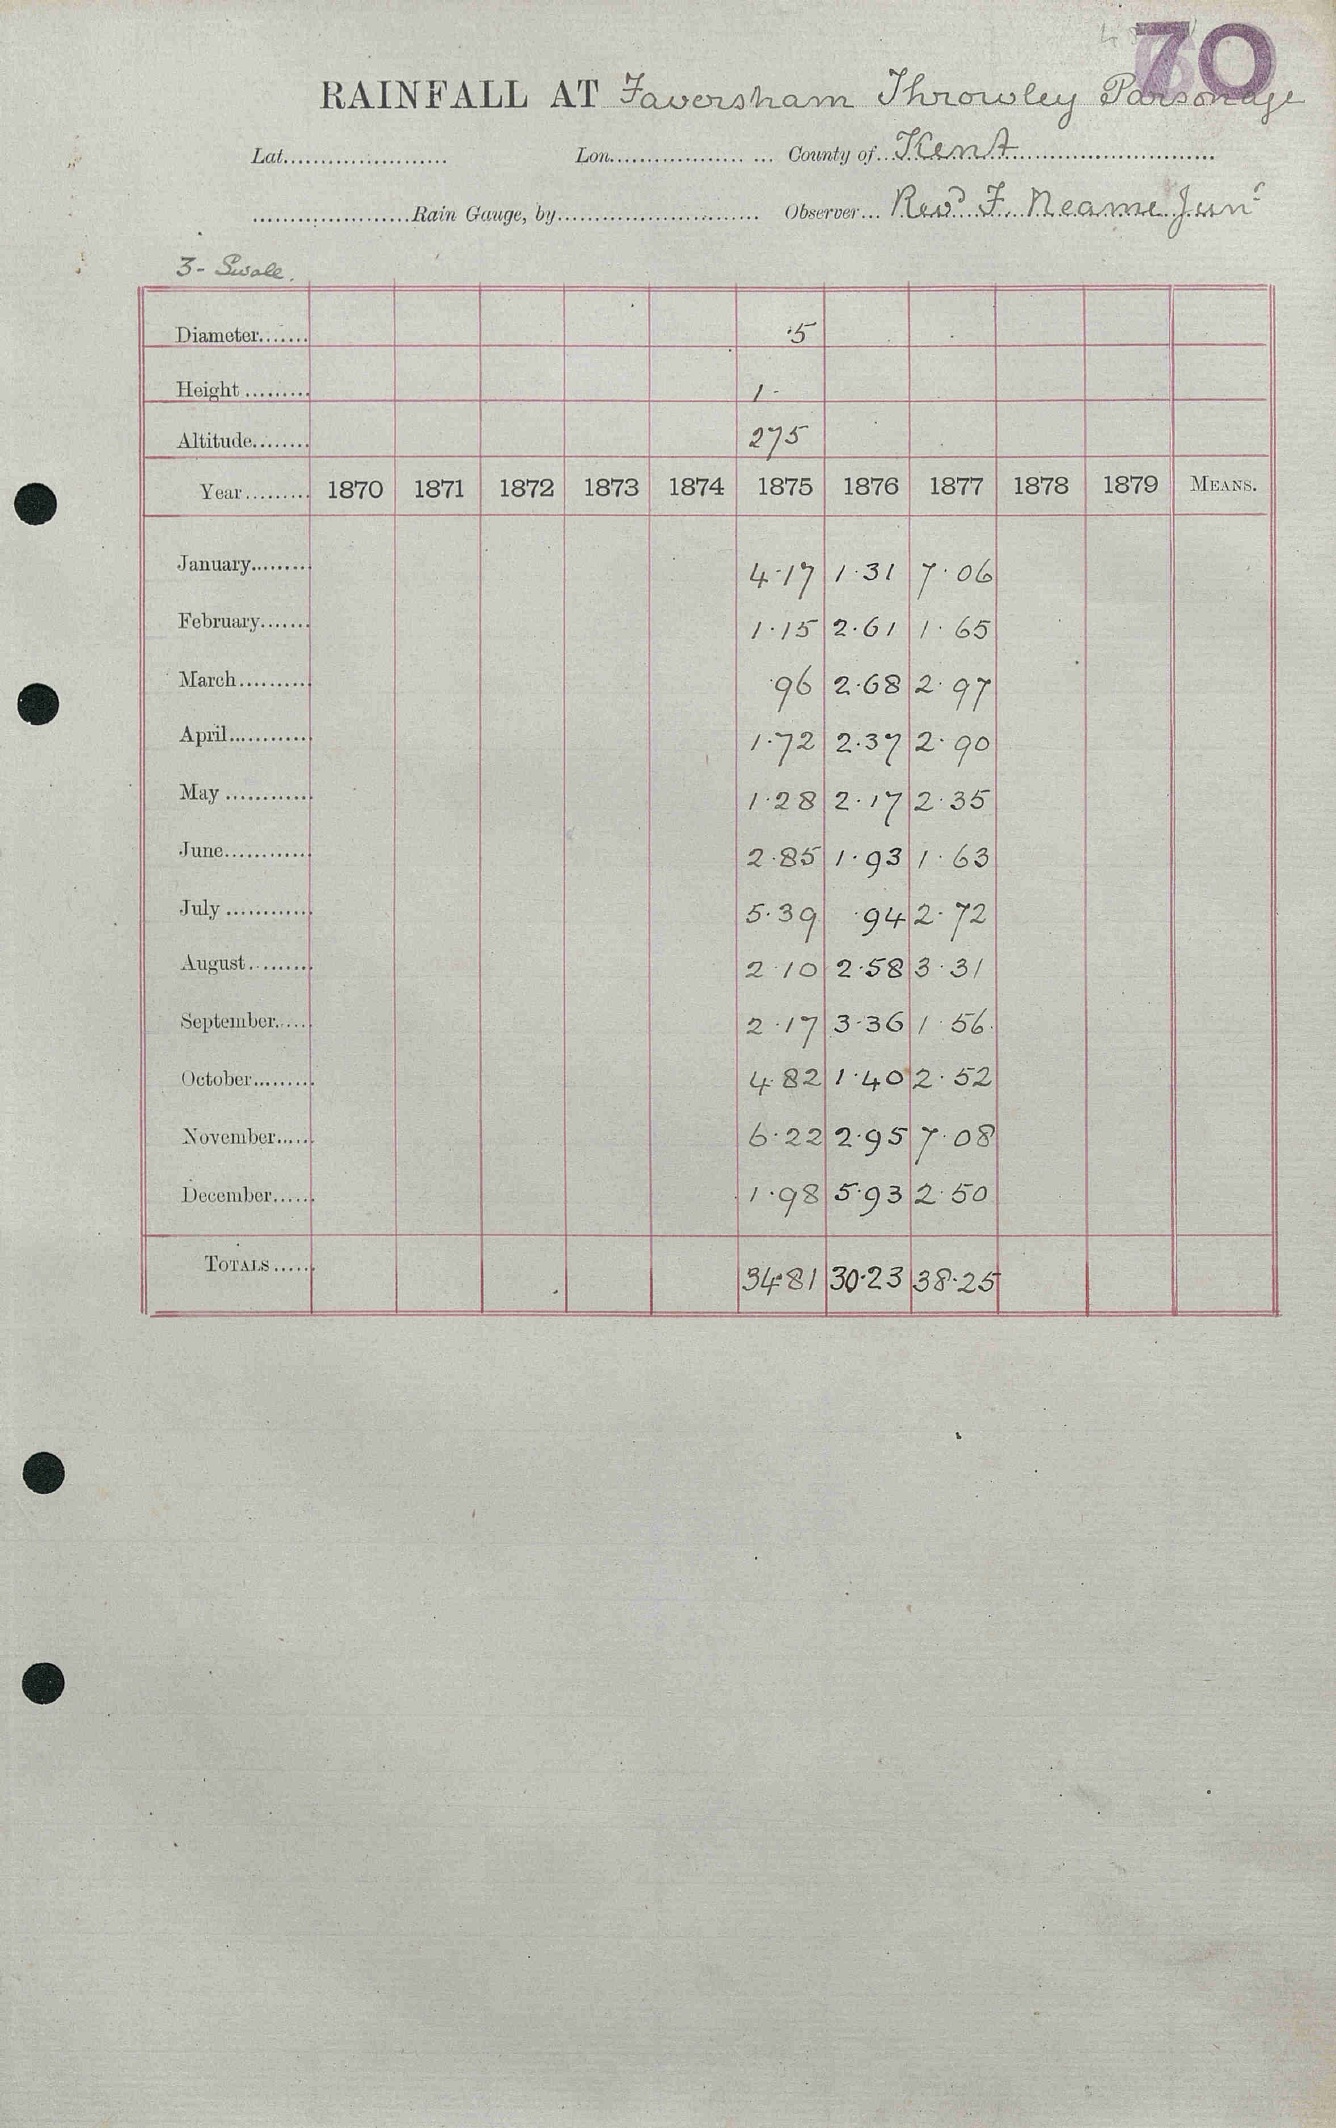 70
RAINFALL AT Faversham Throwley Parsonage
Lat...................... Lon.................. ... County of...Kent..............................
......................Rain Gauge, by............................ Observer... Revd F. Neame Junr
3 - Swale.
Diameter....... ·5
Height ......... 1 -
Altitude........ 275
Year......... 1870 1871 1872 1873 1874 1875 1876 1877 1878 1879 MEANS.
January......... 4·17 1·31 7·06
February....... 1·15 2·61 1·65
March.......... ·96 2·68 2·97
April............ 1·72 2·37 2·90
May ............ 1·28 2·17 2·35
June............ 2·85 1·93 1·63
July ............ 5·39 ·94 2·72
August......... 2·10 2·58 3·31
September..... 2·17 3·36 1·56
October......... 4·82 1·40 2·52
November...... 6·22 2·95 7·08
December...... 1·98 5·93 2·50
TOTALS...... 34·81 30·23 38·25